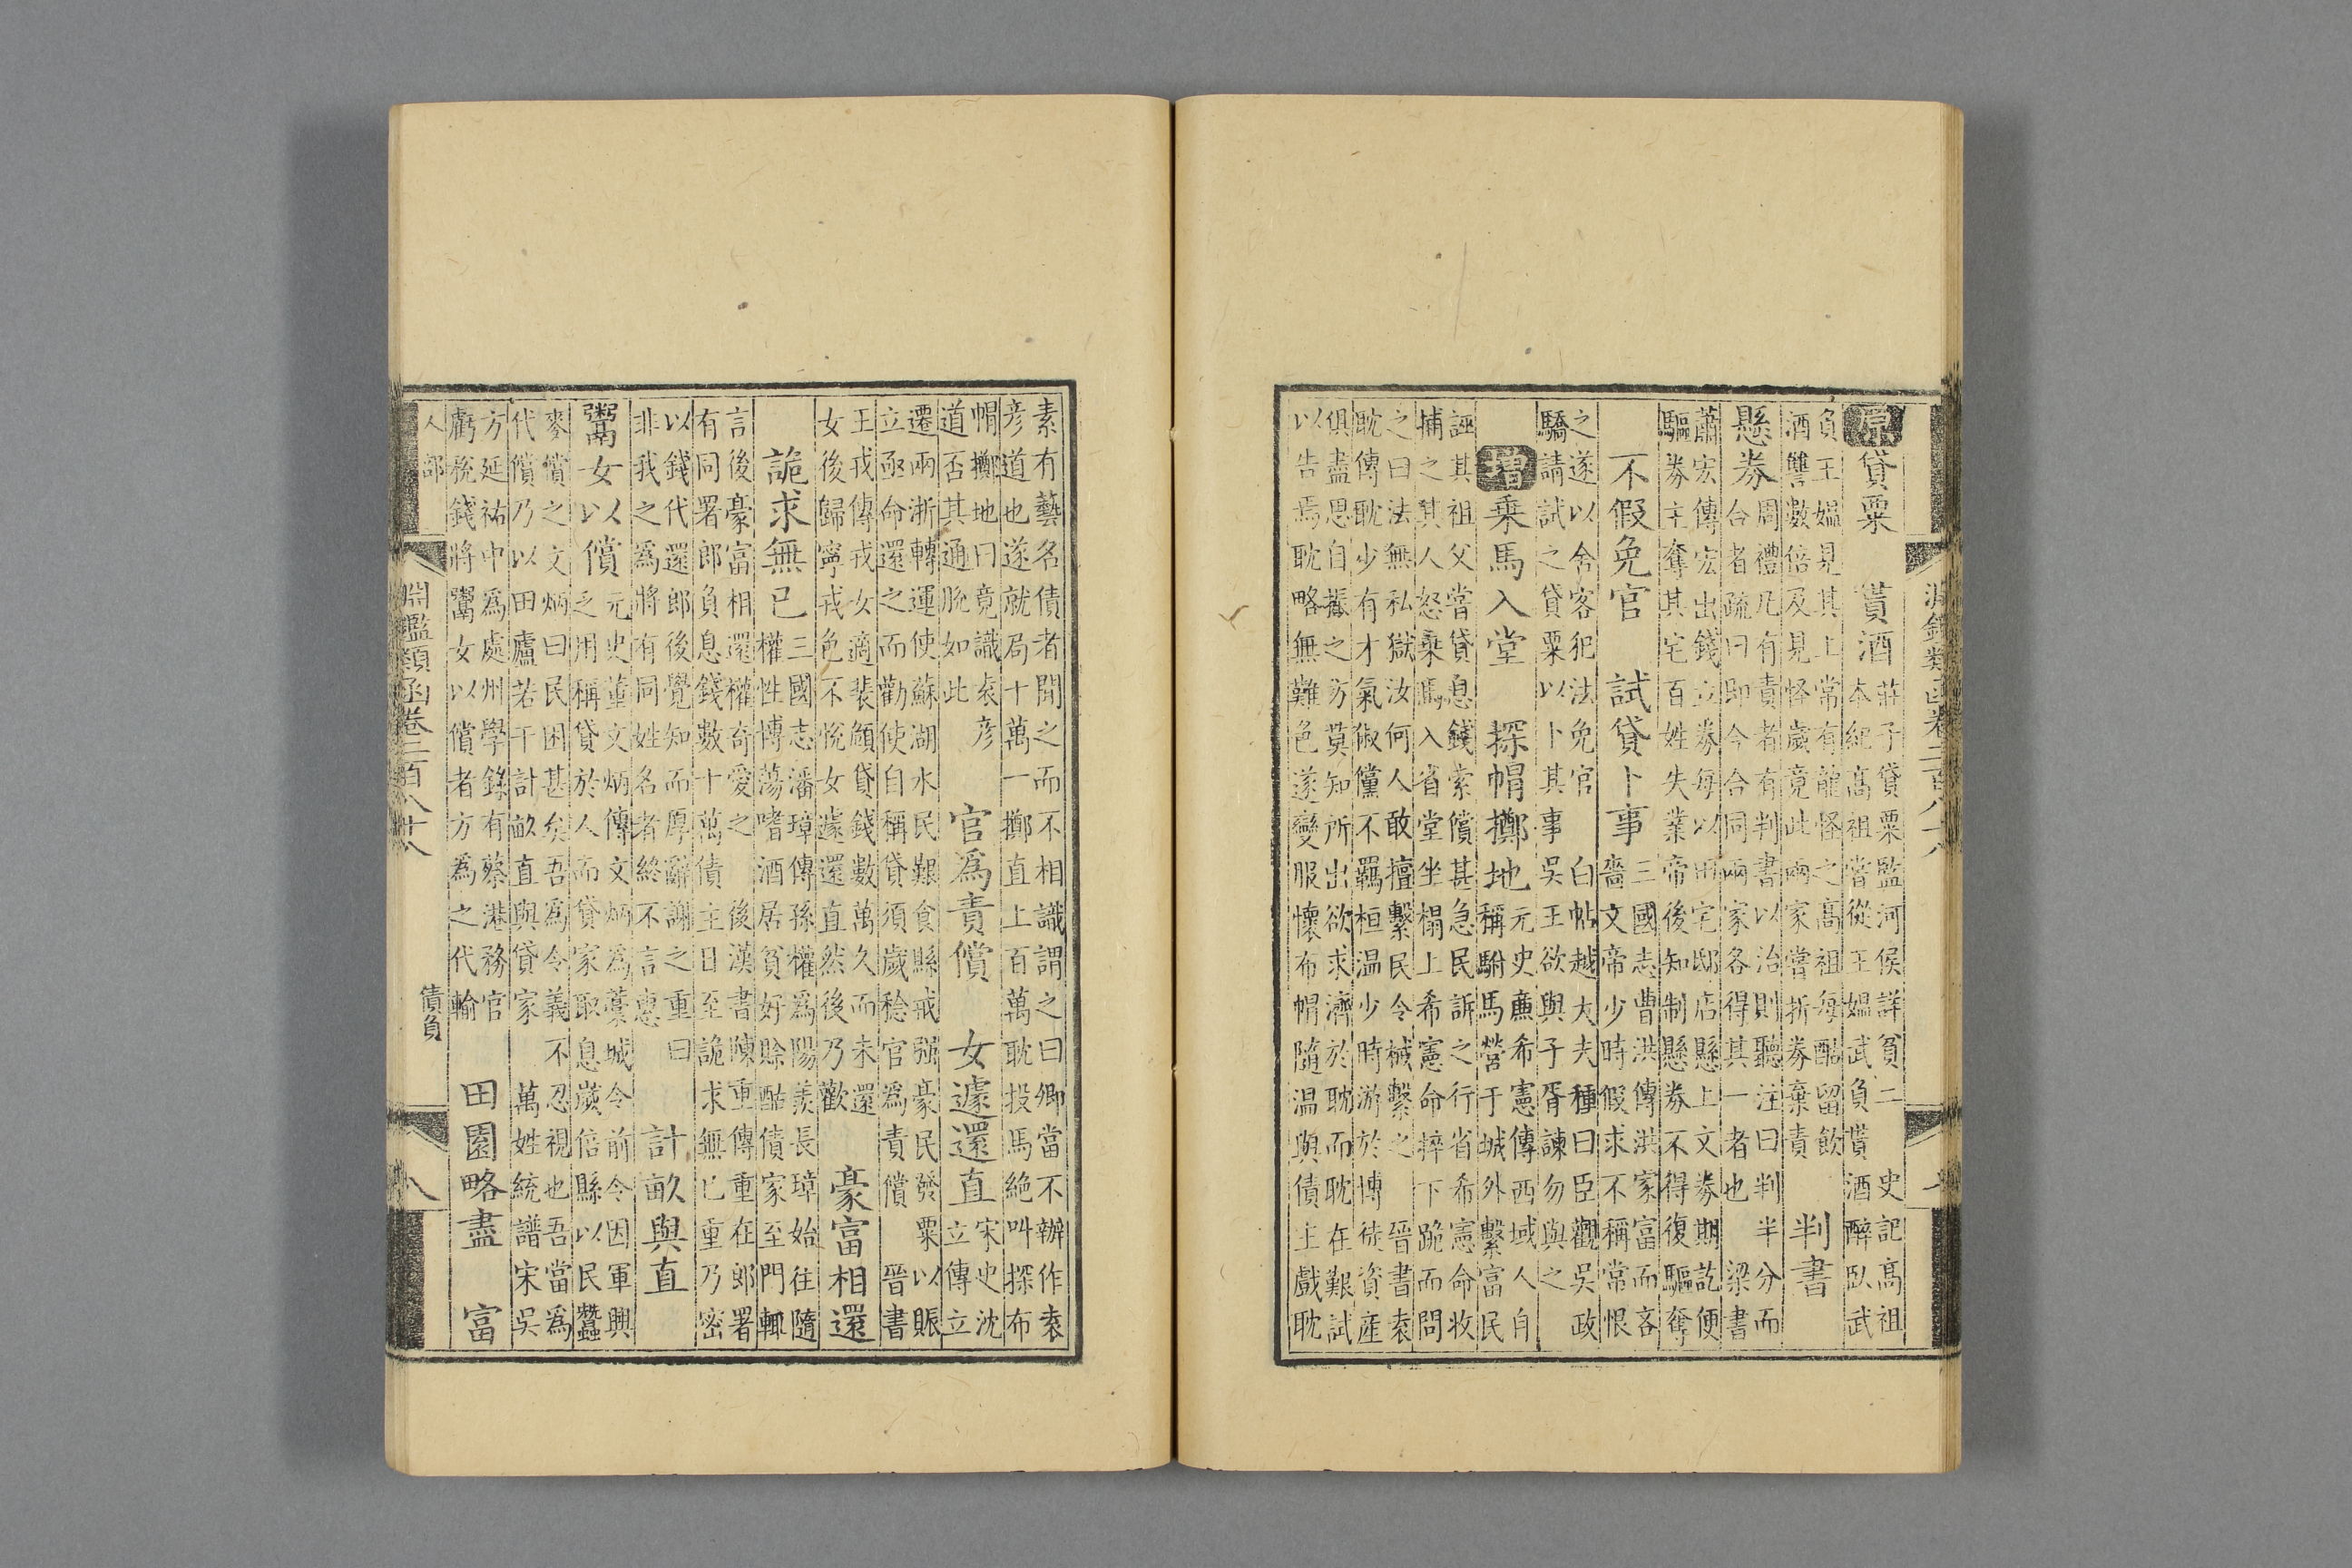 原貸粟 貰酒
莊子貸粟監河侯詳貧二 史記高祖
本紀高祖嘗從王媼武負貰酒醉臥武
負王媼見其上常有龍怪之高祖每酤留飲
酒讐數倍及見怪歲竟此兩家嘗折券棄責
判書
懸券
周禮凡有責者有判書以治則聽注曰判半分而
合者疏曰即今合同兩家各得其一者也 梁書
蕭宏傳宏出錢立券每以田宅邸店懸上文券期訖便
驅券主奪其宅百姓失業帝後知制懸券不得復驅奪
不假免官 試貸卜事
三國志曹洪傳洪家富而吝
嗇文帝少時假求不稱常恨
之遂以舍客犯法免官 白帖越大夫種曰臣觀吳政
驕請試之貸粟以卜其事吳王欲與子胥諫勿與之
增乘馬入堂 探帽擲地
元史廉希憲傳西域人自
稱駙馬營于城外繫富民
誣其祖父嘗貸息錢索償甚急民訴之行省希憲命收
捕之其人怒乘馬入省堂坐榻上希憲命捽下跪而問
之曰法無私獄汝何人敢擅繫民令械繫之 晉書袁
耽傳耽少有才氣俶儻不羈桓温少時游於博徒資產
俱盡思自振之方莫知所出欲求濟於耽而耽在艱試
以告焉耽略無難色遂變服懷布帽隨温與債主戲耽
素有藝名債者聞之而不相識謂之曰卿當不辦作袁
彦道也遂就局十萬一擲直上百萬耽投馬絶叫探布
帽擲地曰竟識袁彦
道否其通脫如此
官爲責償 女遽還直
宋史沈
立傳立
遷兩浙轉運使蘇湖水民艱食縣戒强豪民發粟以賑
立亟命還之而勸使自稱貸須歲稔官爲責償 晉書
王戎傳戎女適裴頠貸錢數萬久而未還
女後歸寧戎色不悅女遽還直然後乃歡
豪富相還
詭求無已
三國志潘璋傳孫權爲陽羨長璋始往隨
權性博蕩嗜酒居貧好賒酤債家至門輒
言後豪富相還權奇愛之 後漢書陳重傳重在郎署
有同署郎負息錢數十萬債主日至詭求無已重乃密
以錢代還郎後覺知而厚辭謝之重曰
非我之爲將有同姓名者終不言惠
計畝與直
鬻女以償
元史董文炳傳文炳爲藁城令前令因軍興
乏用稱貸於人而貸家取息歲倍縣以民蠶
麥償之文炳曰民困甚矣吾爲令義不忍視也吾當爲
代償乃以田廬若干計畝直與貸家 萬姓統譜宋吳
方延祐中爲處州學錄有蔡港務官
虧稅錢將鬻女以償者方爲之代輸
田園略盡 富
人部
淵鑑類函卷三百八十八
債負
八